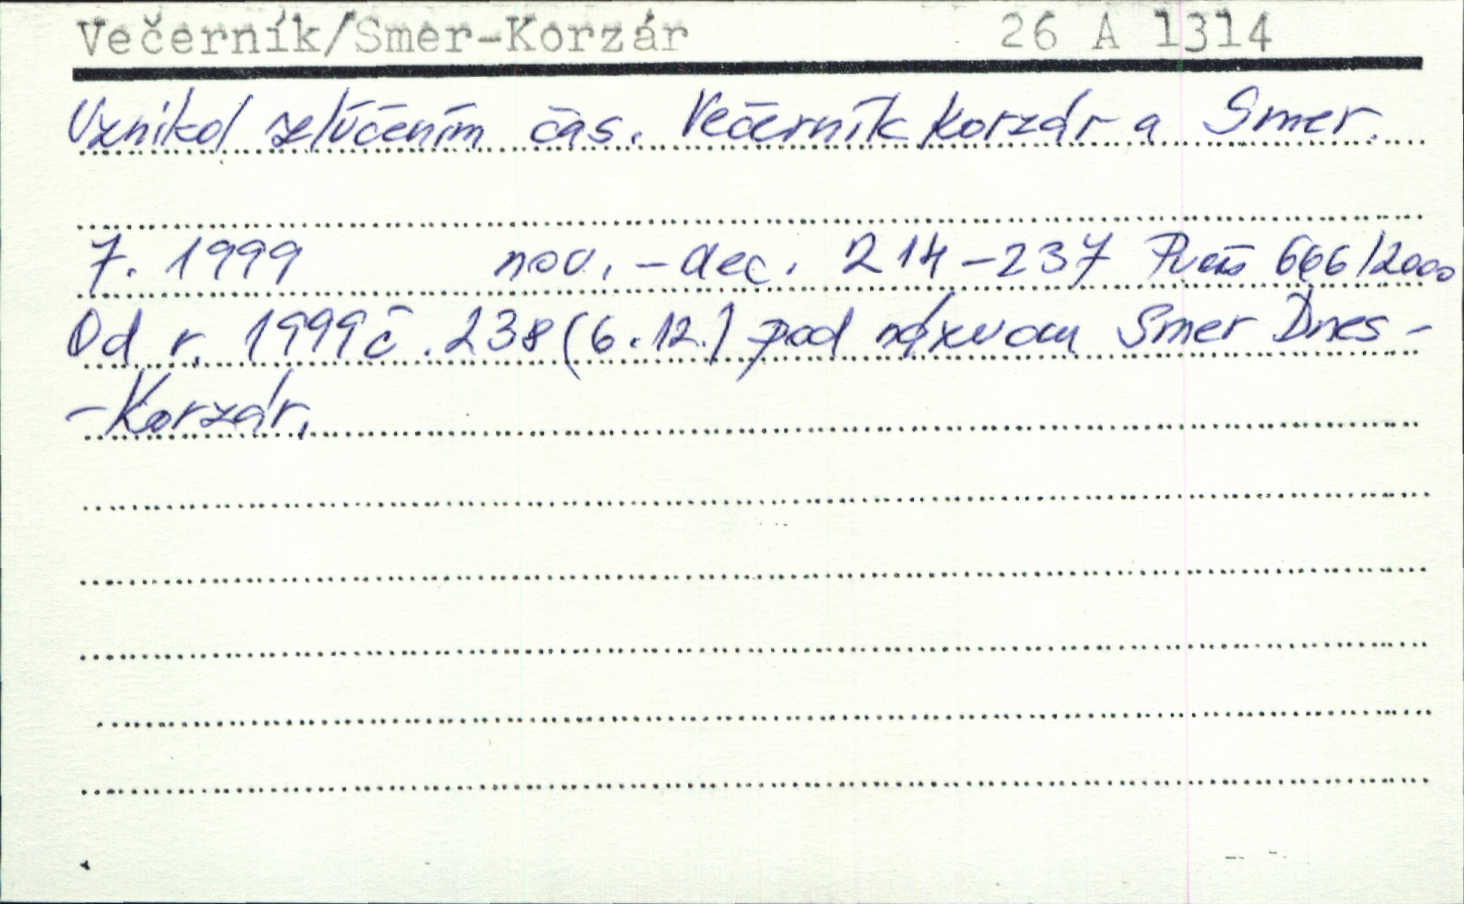 Večerník/Smer-Korzár 26 A 1314
Vznikol zlúčením čas. Večerník Korzár a Smer.
7. 1999 nov. - dec. 214-237 666/2000
Od r. 1999 č. 238 (6.12.) pod názvom Smer Dnes -
- Korzár.